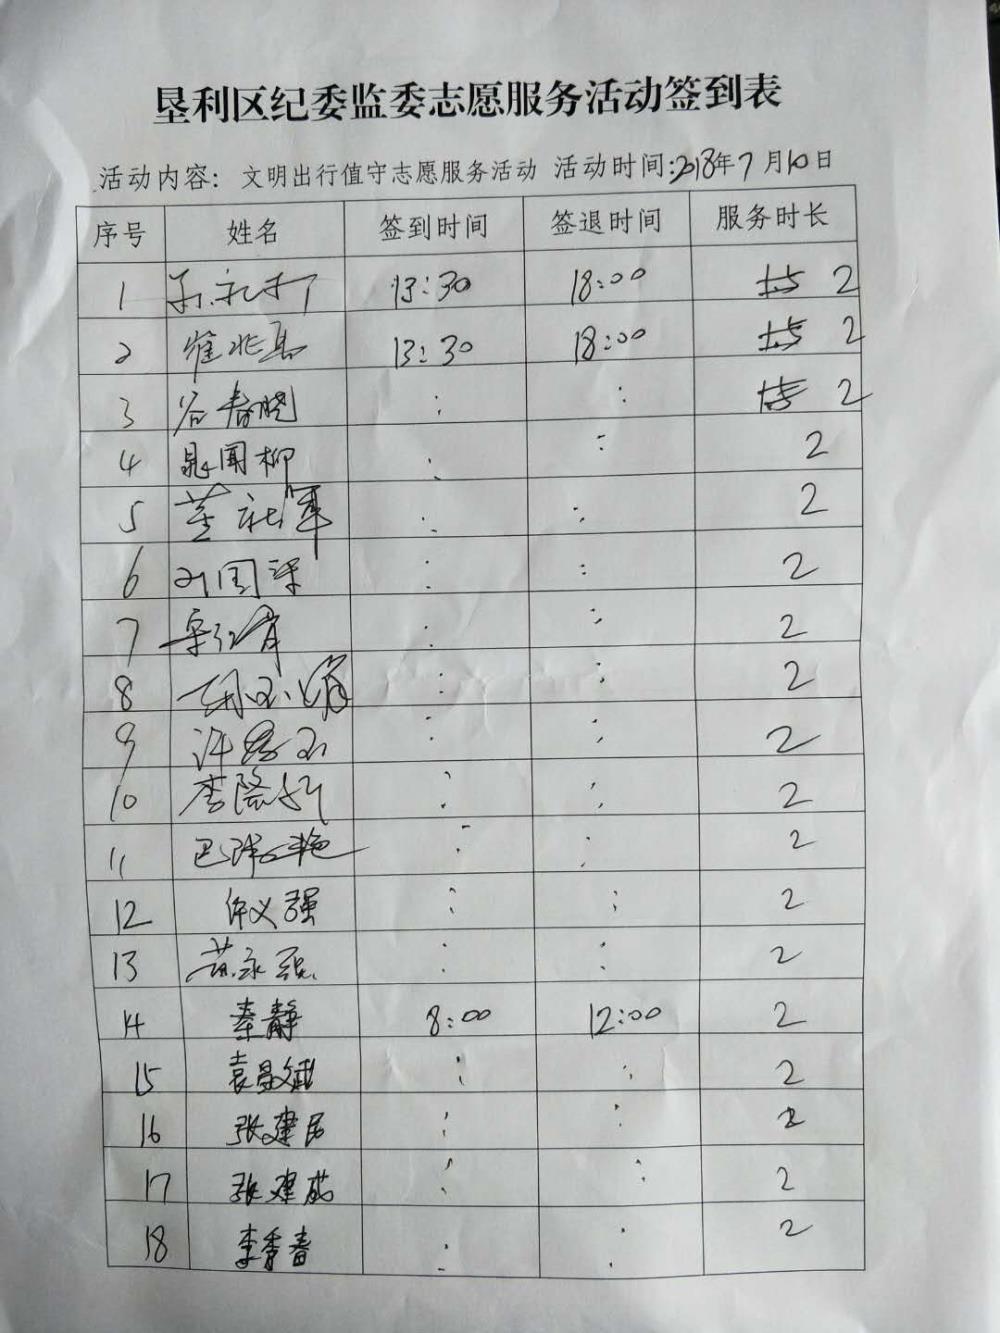 垦利区纪委监委志愿服务活动签到表
活动内容: 文明出行值守志愿服务活动 活动时间:2018年7月10日
序号 姓名 签到时间 签退时间 服务时长
1 13:30 18:00 2
2 崔兆 13:30 18:00 2
3 谷春晓 : : 2
4 晁闻柳 : : 2
5 董社军 : : 2
6 刘国梁 : : 2
7 : : 2
8 胡玉娟 : : 2
9 许 玉 : : 2
10 李隆 : : 2
11 巴 艳 : : 2
12 许义强 : : 2
13 苏永强 : : 2
14 秦静 8:00 12:00 2
15 袁曼斌 : : 2
16 张建民 : : 2
17 张建成 : : 2
18 李香春 : : 2